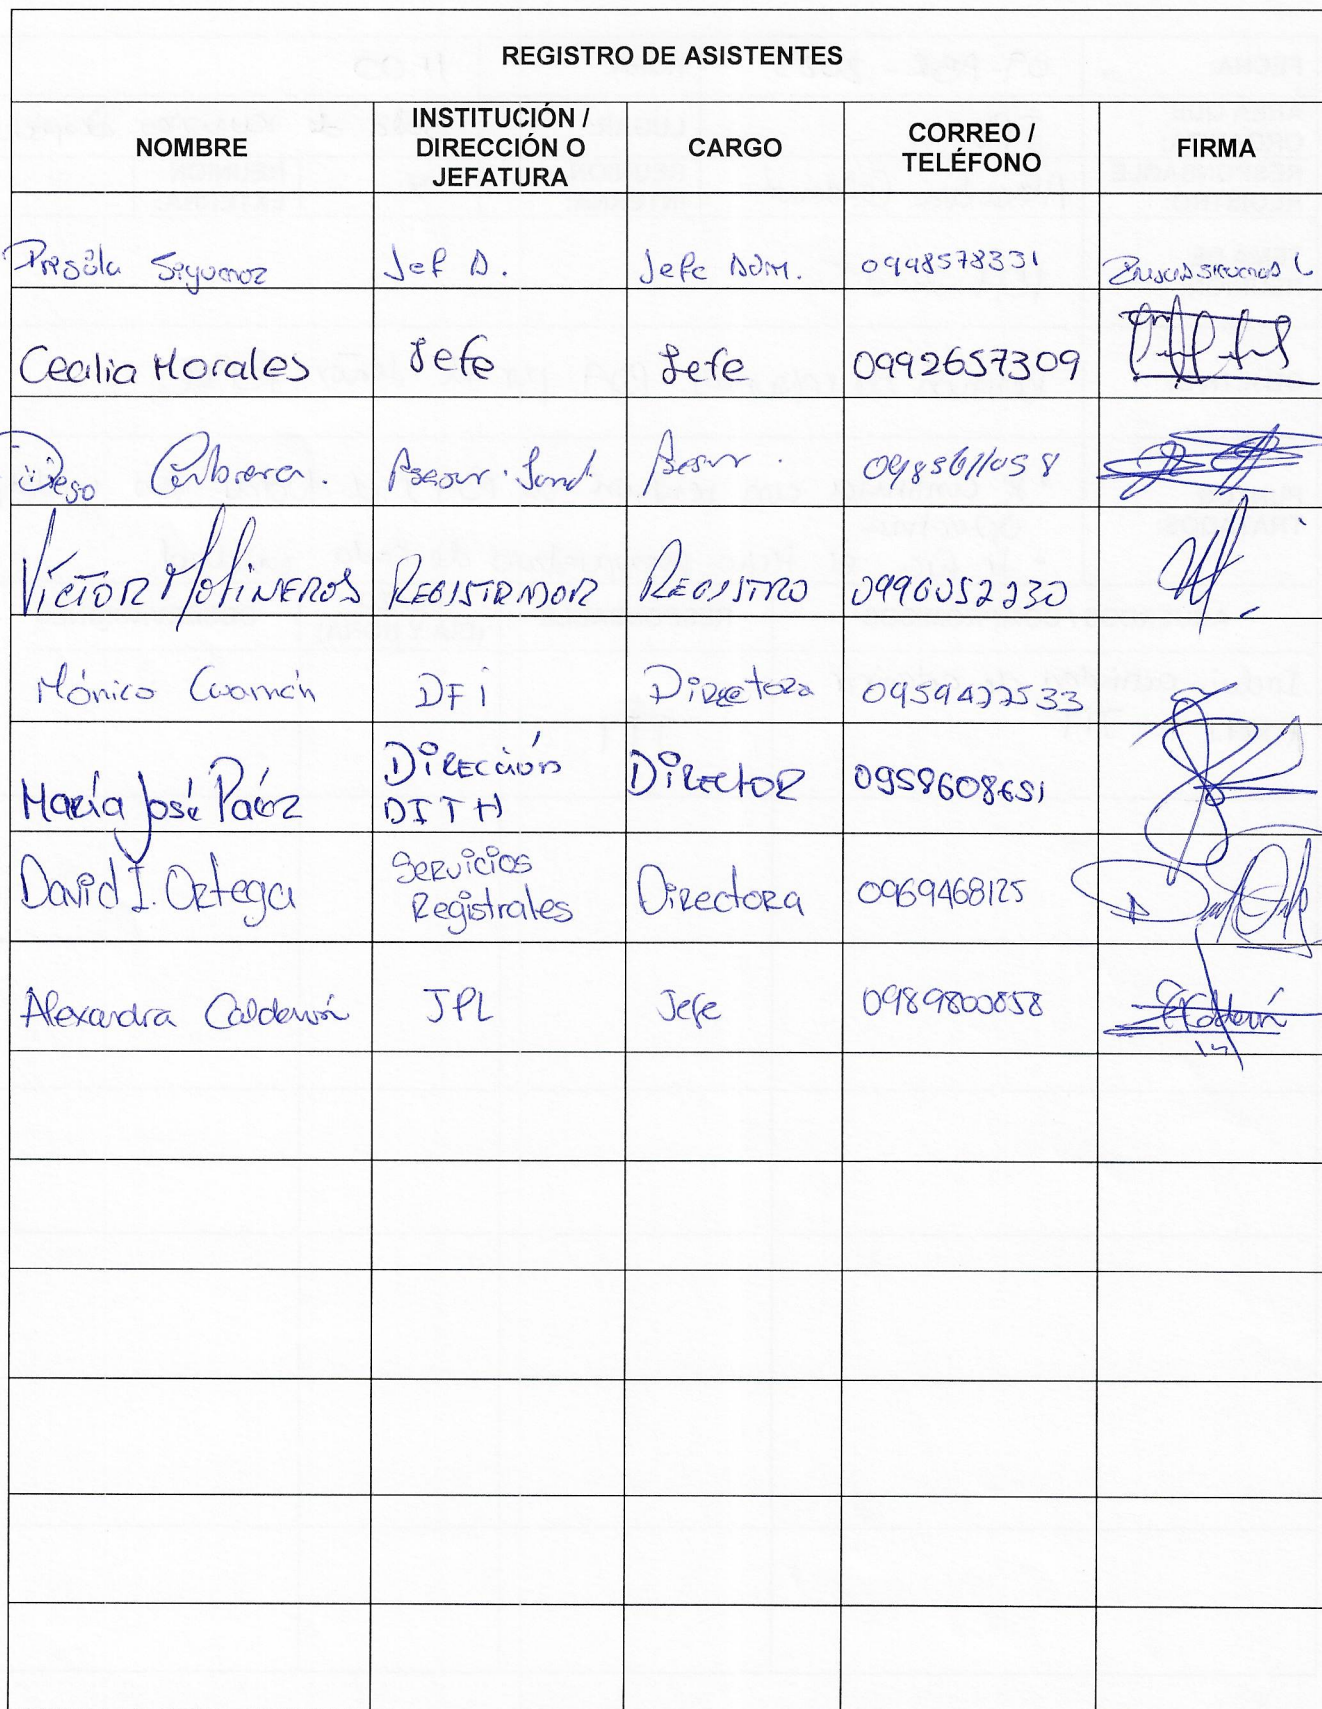 REGISTRO DE ASISTENTES
NOMBRE
INSTITUCIÓN /
DIRECCIÓN O
JEFATURA
CARGO
CORREO /
TELÉFONO
FIRMA
Jef D. Jefe ADM. 0998578331
Cecilia Morales Jefe Jefe 0992657309
Diego Cabrera. Asesor Asesor.
VÍCTOR MOLINEROS REGISTRADOR REGISTRO 0996052230
Mónica Guamán DFI Directora 0959422533
María José Paéz
Dirección
DITH
Director 0958608651
David I. Ortega
Servicios
Registrales
Directora 0969468125
Alexandra Calderón JPL Jefe 0989800858